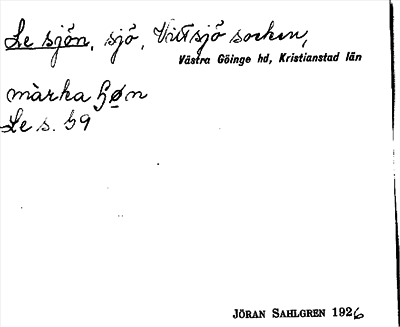 Le sjön, sjö, Vittsjö socken,
Västra Göinge hd, Kristianstad län
màrka ɧøn
Le s. 59
JÖRAN SAHLGREN 1926